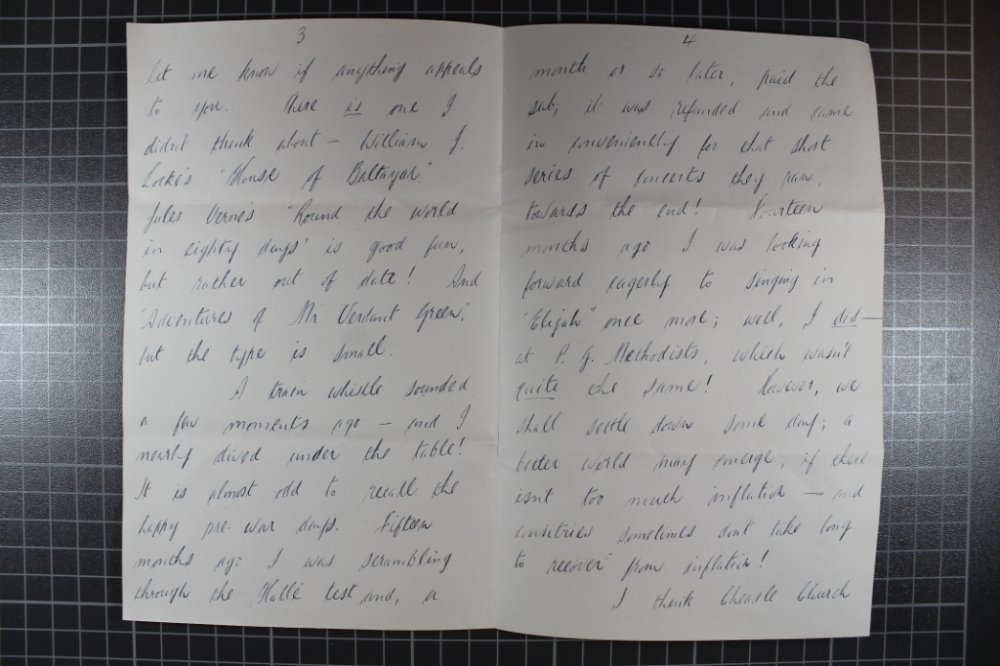 3
let me know if anything appeals
to you. There is one I
didn't think about – William J.
Locke's "House of Baltazar."
Jules Verne's "Round the world
in eighty days" is good fun,
but rather out of date! And
"Adventures of Mr Verdant Green",
but the type is small.
A train whistle sounded
a few moments ago – and I
nearly dived under the table!
It is almost odd to recall the
happy pre-war days. Fifteen
months ago I was scrambling
through the Hallé test and, a
4
month or so later, paid the
sub, it was refunded and came
in conveniently for that short
series of concerts they ran,
towards the end! Fourteen
months ago I was looking
forward eagerly to singing in
"Elijah" once more; well, I did –
at P. G. Methodists, which wasn't
quite the same! However, we
shall settle down some day; a
better world may emerge, if there
isn't too much inflation – and
countries sometimes don't take long
to recover from inflation!
I think Cheadle Church